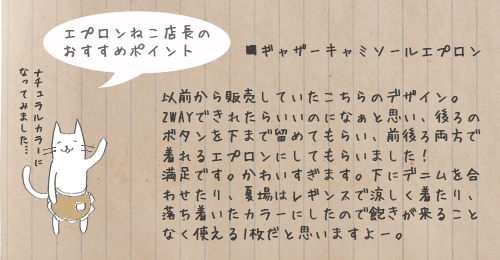 エプロンねこ店長の
おすすめポイント
■ギャザーキャミソールエプロン
ナチュラルカラーに
なってみました…
以前から販売していたこちらのデザイン。
2WAYできれたらいいのになぁと思い、後ろの
ボタンを下まで留めてもらい、前後ろ両方で
着れるエプロンにしてもらいました！
満足です。かわいすぎます。下にデニムを合
わせたり、夏場はレギンスで涼しく着たり、
落ち着いたカラーにしたので飽きが来ること
なく使える1枚だと思いますよー。